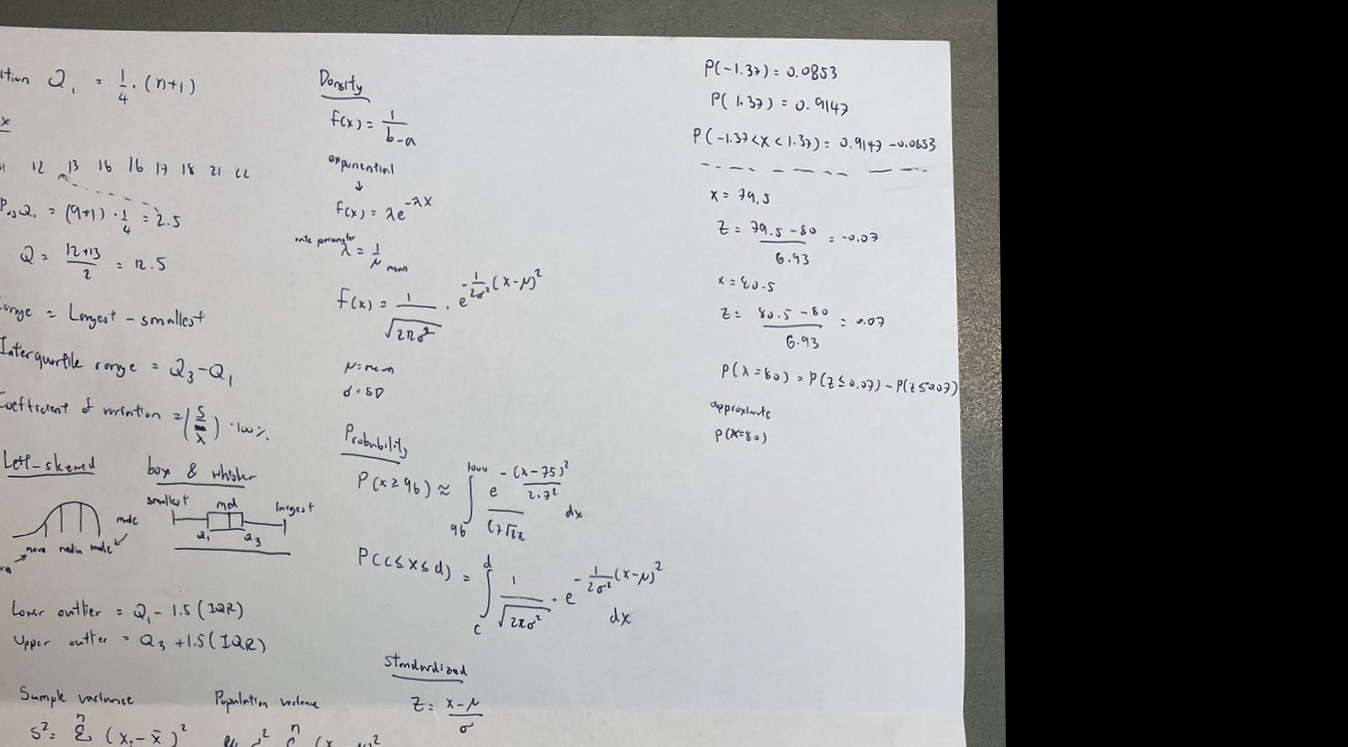 ition Q₁ = 1/4 · (n+1)
x
12 13 16 16 17 18 21 22
Pos Q₁ = (9+1) · 1/4 = 2.5
Q = (12+13)/2 = 12.5
ange = Largest - smallest
Interquartile range = Q₃ - Q₁
Coefficient of variation = (S/x̄) · 100%
Left-skewed
mean median mode
mode
box & whisker
smallest med largest
Q₁ Q₃
Lower outlier = Q₁ - 1.5 (IQR)
Upper outlier = Q₃ + 1.5 (IQR)
Sample variance
S² = Σⁿ (xᵢ - x̄)²
Population variance
Density
f(x) = 1/(b-a)
exponential
↓
f(x) = λe^(-λx)
rate parameter λ = 1/μ mean
f(x) = 1/√(2πσ²) · e^(-1/(2σ²) (x-μ)²)
μ = mean
σ = SD
Probability
P(x ≥ 96) ≈ ∫ 96 1000 e^(-(x-75)²/(2·7²)) / (7√2π dx
P(c ≤ x ≤ d) = ∫ c d 1/√(2πσ²) · e^(-1/(2σ²) (x-μ)²) dx
Standardized
Z = (x-μ)/σ
P(-1.37) = 0.0853
P(1.37) = 0.9147
P(-1.37 < x < 1.37) = 0.9147 - 0.0853
x = 79.5
Z = (79.5 - 80)/6.93 = -0.07
x = 80.5
Z = (80.5 - 80)/6.93 = 0.07
P(X = 80) = P(Z ≤ 0.07) - P(Z ≤ 0.07)
approximate
P(X=80)